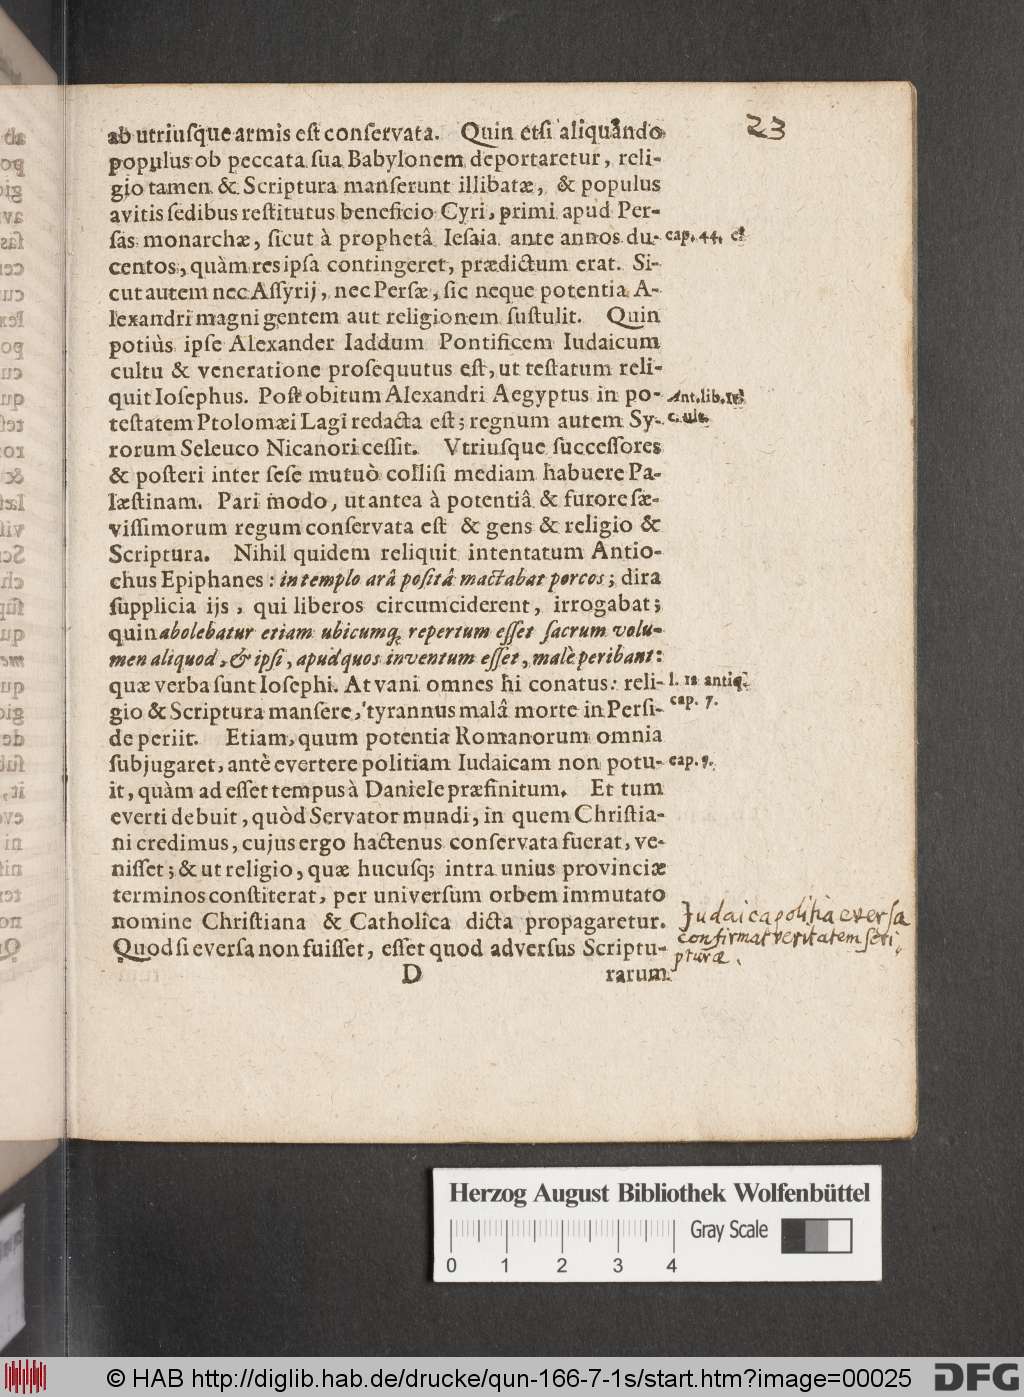 23
ab utriusque armis est conservata. Quin etsi aliquando
populus ob peccata sua Babylonem deportaretur, reli-
gio tamen & Scriptura manserunt illibatæ, & populus
avitis sedibus restitutus beneficio Cyri, primi apud Per-
sas monarchæ, sicut à prophetâ Iesaia ante annos du-
cap. 44. et
centos, quàm res ipsa contingeret, prædictum erat. Si-
cut autem nec Assyrij, nec Persæ, sic neque potentia A-
lexandri magni gentem aut religionem sustulit. Quin
potiùs ipse Alexander Iaddum Pontificem Iudaicum
cultu & veneratione prosequutus est, ut testatum reli-
quit Iosephus. Post obitum Alexandri Aegyptus in po-
Ant. lib. 
testatem Ptolomæi Lagi redacta est; regnum autem Sy-
c. ult.
rorum Seleuco Nicanori cessit. Vtriusque successores
& posteri inter sese mutuò collisi mediam habuere Pa-
læstinam. Pari modo, ut antea à potentiâ & furore sæ-
vissimorum regum conservata est & gens & religio &
Scriptura. Nihil quidem reliquit intentatum Antio-
chus Epiphanes: in templo arâ positâ mactabat porcos; dira
supplicia ijs, qui liberos circumciderent, irrogabat;
quin abolebatur etiam ubicumq; repertum esset sacrum volu-
men aliquod, & ipsi, apud quos inventum esset, malè peribant:
quæ verba sunt Iosephi. At vani omnes hi conatus: reli-
l. 12 antiq.
gio & Scriptura mansere, tyrannus malâ morte in Persi-
cap. 7.
de periit. Etiam, quum potentia Romanorum omnia
subjugaret, antè evertere politiam Iudaicam non potu-
cap. 9.
it, quàm ad esset tempus à Daniele præfinitum. Et tum
everti debuit, quòd Servator mundi, in quem Christia-
ni credimus, cujus ergo hactenus conservata fuerat, ve-
nisset; & ut religio, quæ hucusq; intra unius provinciæ
terminos constiterat, per universum orbem immutato
nomine Christiana & Catholica dicta propagaretur.
Quod si eversa non fuisset, esset quod adversus Scriptu-
Judaica politia eversa
confirmat veritatem scri
pturæ.
D rarum
Herzog August Bibliothek Wolfenbüttel
Gray Scale
0 1 2 3 4
© HAB http://diglib.hab.de/drucke/qun-166-7-1s/start.htm?image=00025
DFG